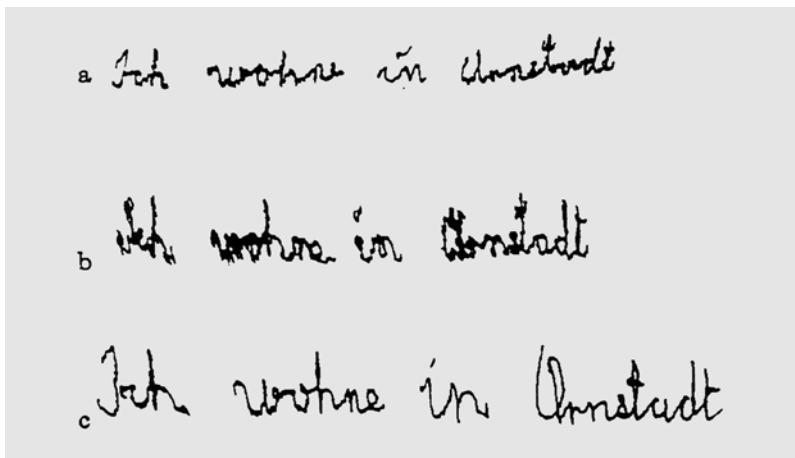 a Ich wohne in Arnstadt
b Ich wohne in Arnstadt
c Ich wohne in Arnstadt